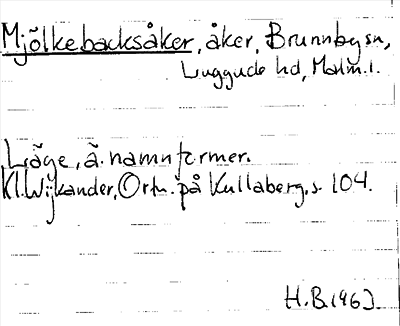 Mjölkebacksåker, åker, Brunnby sn,
Luggude hd, Malm. l.
Läge, ä. namnformer.
Kl. Wijkander, Ortn. på Kullaberg, s. 104.
H.B. 1963.